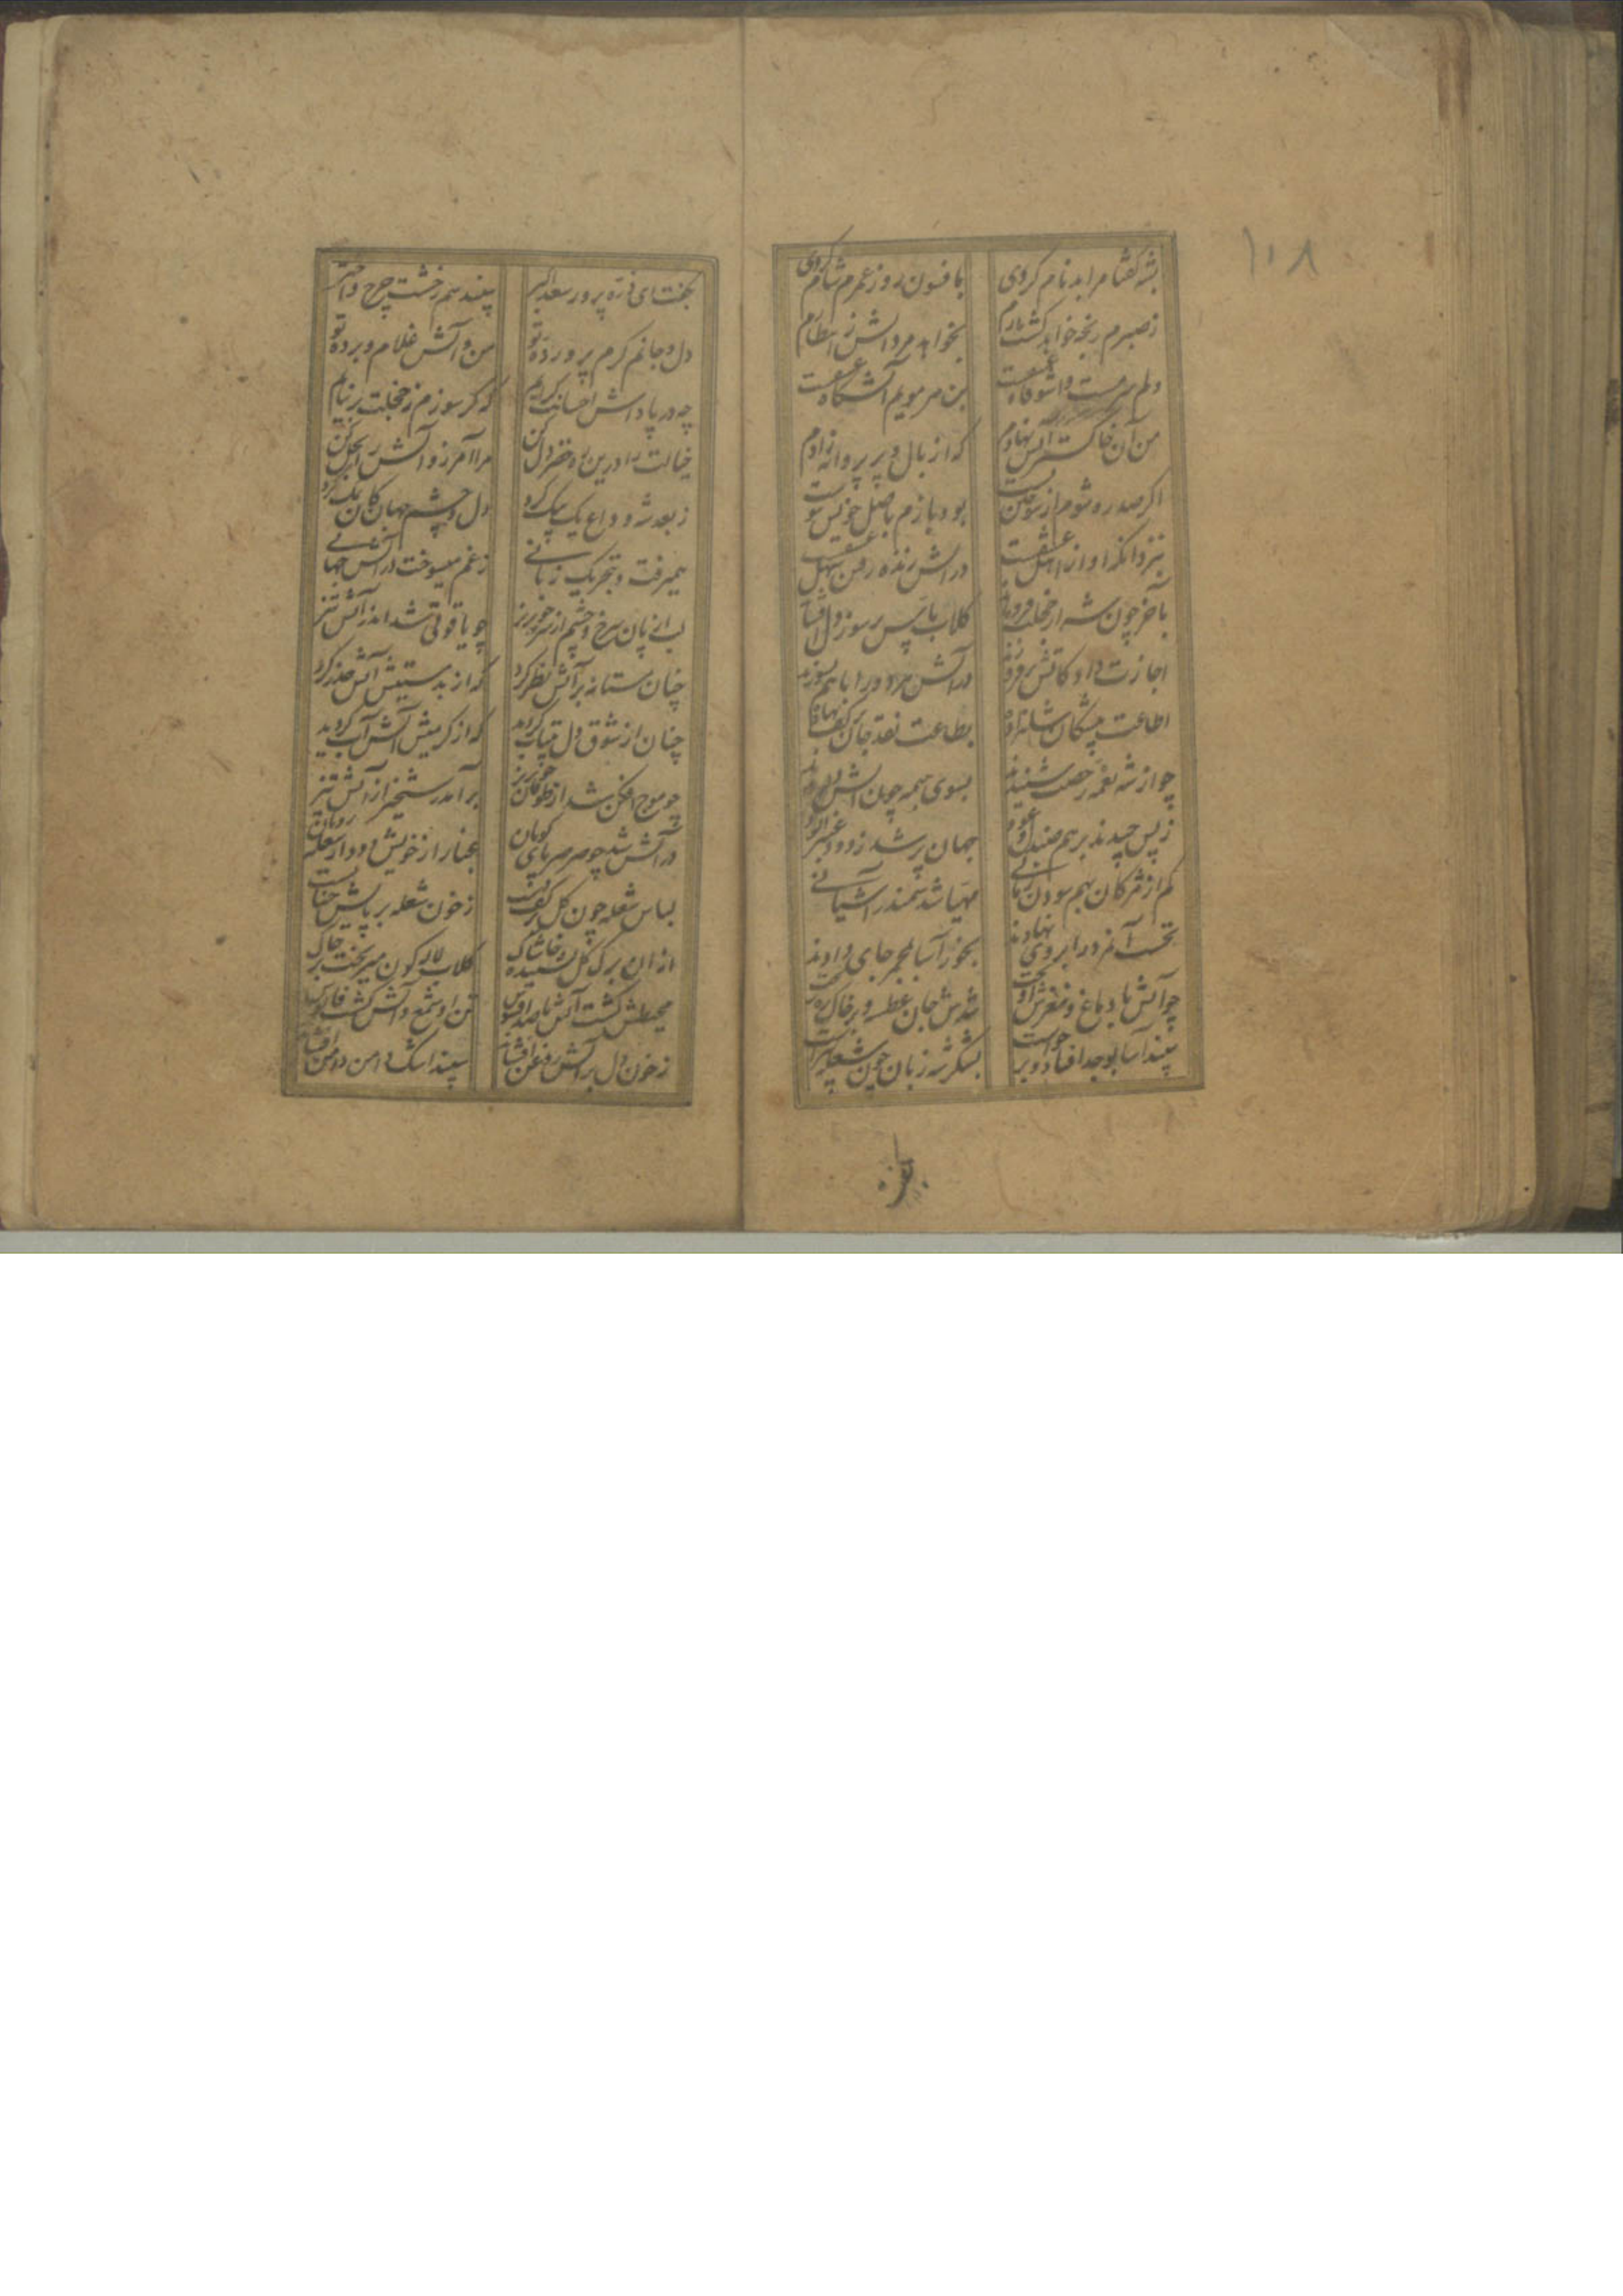 ۱۰۸
بشه گفتا مرا بدنام کردی
بافسون روز عمرم شام کردی
ز صبرم رنجه خواهد گشت
بخواهد مرد آتش ز انتظارم
دلم سرمست و آتشگاه عشقست
بن هر مویم آتشگاه عشقست
من آن خاکستر آتش نهادم
که از بال و پر پروانه زادم
اگر صد ره شوم از سوختن
بود بازم باصل خویش
بنزد آنکه او از اهل عشقست
در آتش زنده رفتن سهل عشقست
بآخر چون شه از خجلت فروماند
کلاب یاس بر سوز دل افشاند
اجازت داد کاتش برفروزند
در آتش مرد و را باهم بسوزند
اطاعت پیشگان شاهزاده
بطاعت نقد جان بر کف نهاده
چو از شه نغمه رخصت شنیدند
بسوی همه چون آتش دویدند
ز پس چیدند بر هم صندل و عود
جهان پر شد ز دود عنبرآلود
کم از مژگان بهم سودن زمانی
مهیا شد سمندر آشیانی
نخست آن مرده را بروی نهادند
بخور آسا بمجمر جای دادند
چو آتش با دماغ و مغزش
شدش جان عطسه و بر خاک ره
سپند آسا بوجد افتاد و برخاست
بشکر شه زبان چون شعله آراست
بگفت ای ذره پرور سعد اکبر
سپند بزم رخشت چرخ و اختر
دل و جانم کرم پرورده تو
من و آتش غلام و برده تو
چه در پاداش احسانت کریم
که گر سوزم ز خجلت بر نیایم
خیالت را درین ره خضر دل کن
مرا آمرز و آتش را بحل کن
ز بعد شه وداع یک بیک کرد
دل و چشم جهان کان نمک کرد
همیرفت و بتحریک زبانی
ز غم میسوخت در آتش جهانی
لب از پان سرخ و چشم از سرمه
چو یاقوتی شد اندر آتش تیز
چنان مستانه بر آتش نظر کرد
که از بدمستیش آتش حذر کرد
چنان از شوق دل بیتاب گردید
که از گرمیش آتش آب گردید
چو موج افکن شد از طوفان خونریز
برآمد رستخیز از آتش تیز
در آتش شد چو صرصر پای کوبان
غبار از خویش و دود از شعله روبان
لباس شعله چون گل بر
ز خون شعله بر پایش حنا بست
از ان برگ گل
گلاب لاله گون میریخت بر خاک
محیطش گشت آتش با صد افسوس
تن او شمع و آتش گشت فانوس
ز خون دل بر آتش روغن افشاند
سپند اشک دامن دامن افشاند